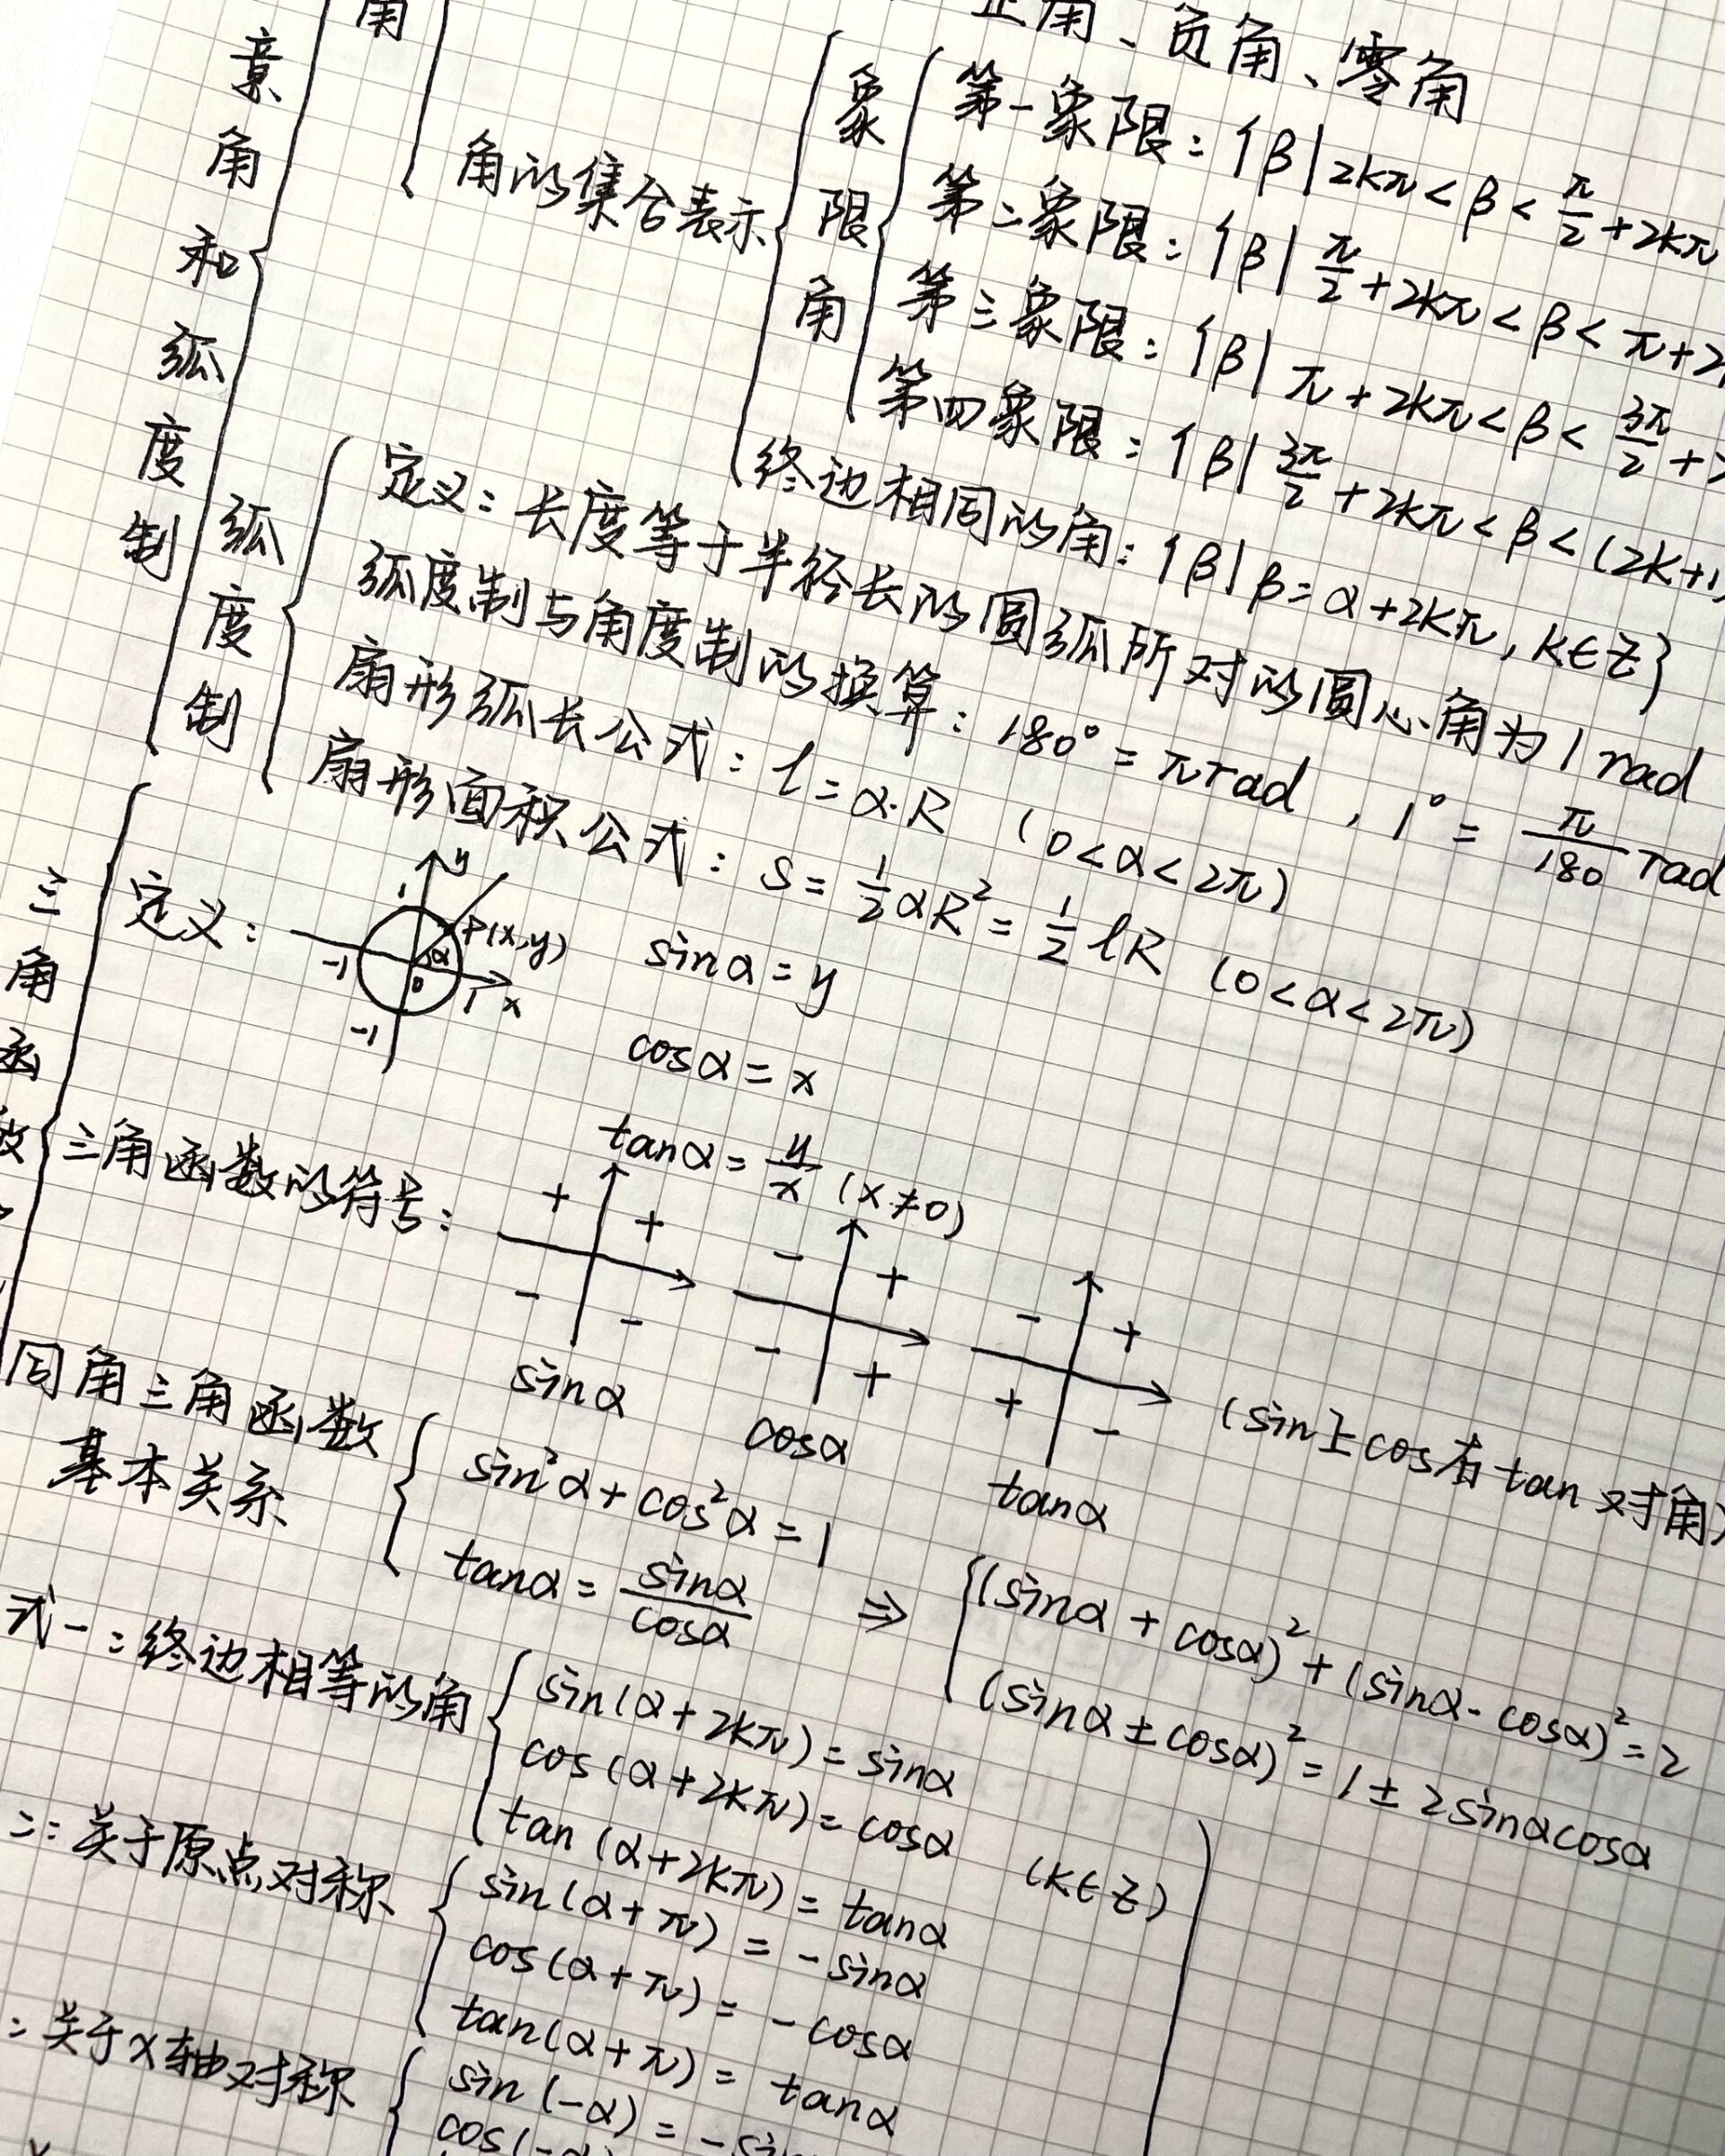 正角、负角、零角
角
意角和弧度制
角的集合表示
象限角
第一象限：{β|2kπ<β<π/2+2kπ
第二象限：{β|π/2+2kπ<β<π+2
第三象限：{β|π+2kπ<β<3π/2+
第四象限：{β|3π/2+2kπ<β<(2k+1)
终边相同的角：{β|β=α+2kπ，k∈Z}
弧度制
定义：长度等于半径长的圆弧所对的圆心角为1rad
弧度制与角度制的换算：180°=πrad，1°=π/180 rad
扇形弧长公式：l=α·R (0<α<2π)
扇形面积公式：S=1/2αR²=1/2lR (0<α<2π)
三角函数
定义：
y
1
P(x,y)
α
-1
0
1
x
-1
sinα=y
cosα=x
tanα=y/x (x≠0)
三角函数的符号：
+ +
- -
sinα
- +
- +
cosα
- +
+ -
tanα
(sin上cos右tan对角)
同角三角函数
基本关系
sin²α+cos²α=1
tanα=sinα/cosα
⇒
(sinα+cosα)²+(sinα-cosα)²=2
(sinα±cosα)²=1±2sinαcosα
式一：终边相等的角
sin(α+2kπ)=sinα
cos(α+2kπ)=cosα
tan(α+2kπ)=tanα
(k∈Z)
二：关于原点对称
sin(α+π)=-sinα
cos(α+π)=-cosα
tan(α+π)=tanα
：关于x轴对称
sin(-α)=-sin
cos(-α)